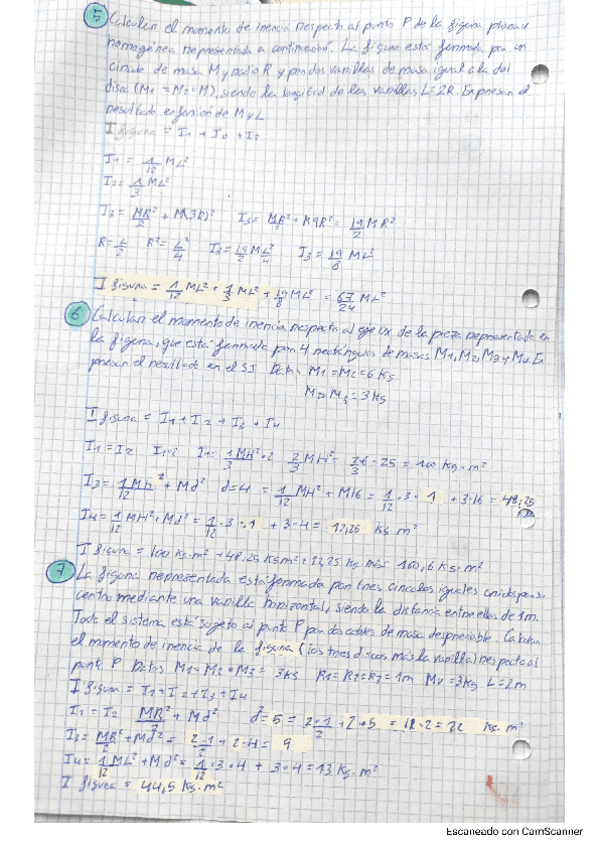 5 Calcular el momento de inercia respecto al punto P de la figura plana y
homogénea representada a continuación. La figura está formada por un
círculo de masa M y radio R y por dos varillas de masa igual a la del
disco (M₁ = M₂ = M), siendo la longitud de las varillas L=2R. Expresar el
resultado en función de M y L
I figura = I₁ + I₂ + I₃
I₁ = 1/12 ML²
I₂ = 1/3 ML²
I₃ = MR²/2 + M(3R)² I₃ = MR²/2 + M9R² = 19/2 MR²
R = L/2 R² = L²/4 I₃ = 19/2 M L²/4 I₃ = 19/8 ML²
I figura = 1/12 ML² + 1/3 ML² + 19/8 ML² = 67/24 ML²
6 Calcular el momento de inercia respecto al eje ux de la pieza representada en
la figura, que está formada por 4 rectángulos de masas M₁, M₂, M₃ y M₄. Ex
presar el resultado en el SI Datos M₁ = M₂ = 6 Kg
M₃ = 3 Kg
I figura = I₁ + I₂ + I₃ + I₄
I₁ = I₂ I₁·2 I₁ = 1/3 MH²·2 2/3 MH² = 2/3·6·25 = 100 Kg·m²
I₃ = 1/12 MH² + Md² d=4 = 1/12 MH² + M16 = 1/12·3·1 + 3·16 = 48,25
I₄ = 1/12 MH² + Md² = 1/12·3·1 + 3·4 = 12,25 Kg m²
I figura = 100 Kg·m² + 48,25 Kg m² + 12,25 Kg m² = 160,6 Kg·m²
7 La figura representada está formada por tres círculos iguales unidos por su
centro mediante una varilla horizontal, siendo la distancia entre ellos de 1m.
Todo el sistema está sujeto al punto P por dos cables de masa despreciable. Calcular
el momento de inercia de la figura (los tres discos más la varilla) respecto al
punto P Datos M₁ = M₂ = M₃ = 3Kg R₁ = R₂ = R₃ = 1m Mv = 3Kg L = 2m
I figura = I₁ + I₂ + I₃ + I₄
I₁ = I₂ MR²/2 + Md² d² = 5 = 2·1/2 + 2·5 = 11·2 = 22 Kg·m²
I₃ = MR²/2 + Md² = 2·1/2 + 2·4 = 9
I₄ = 1/12 ML² + Md² = 1/12·3·4 + 3·4 = 13 Kg·m²
I figura = 44,5 Kg·m²
Escaneado con CamScanner